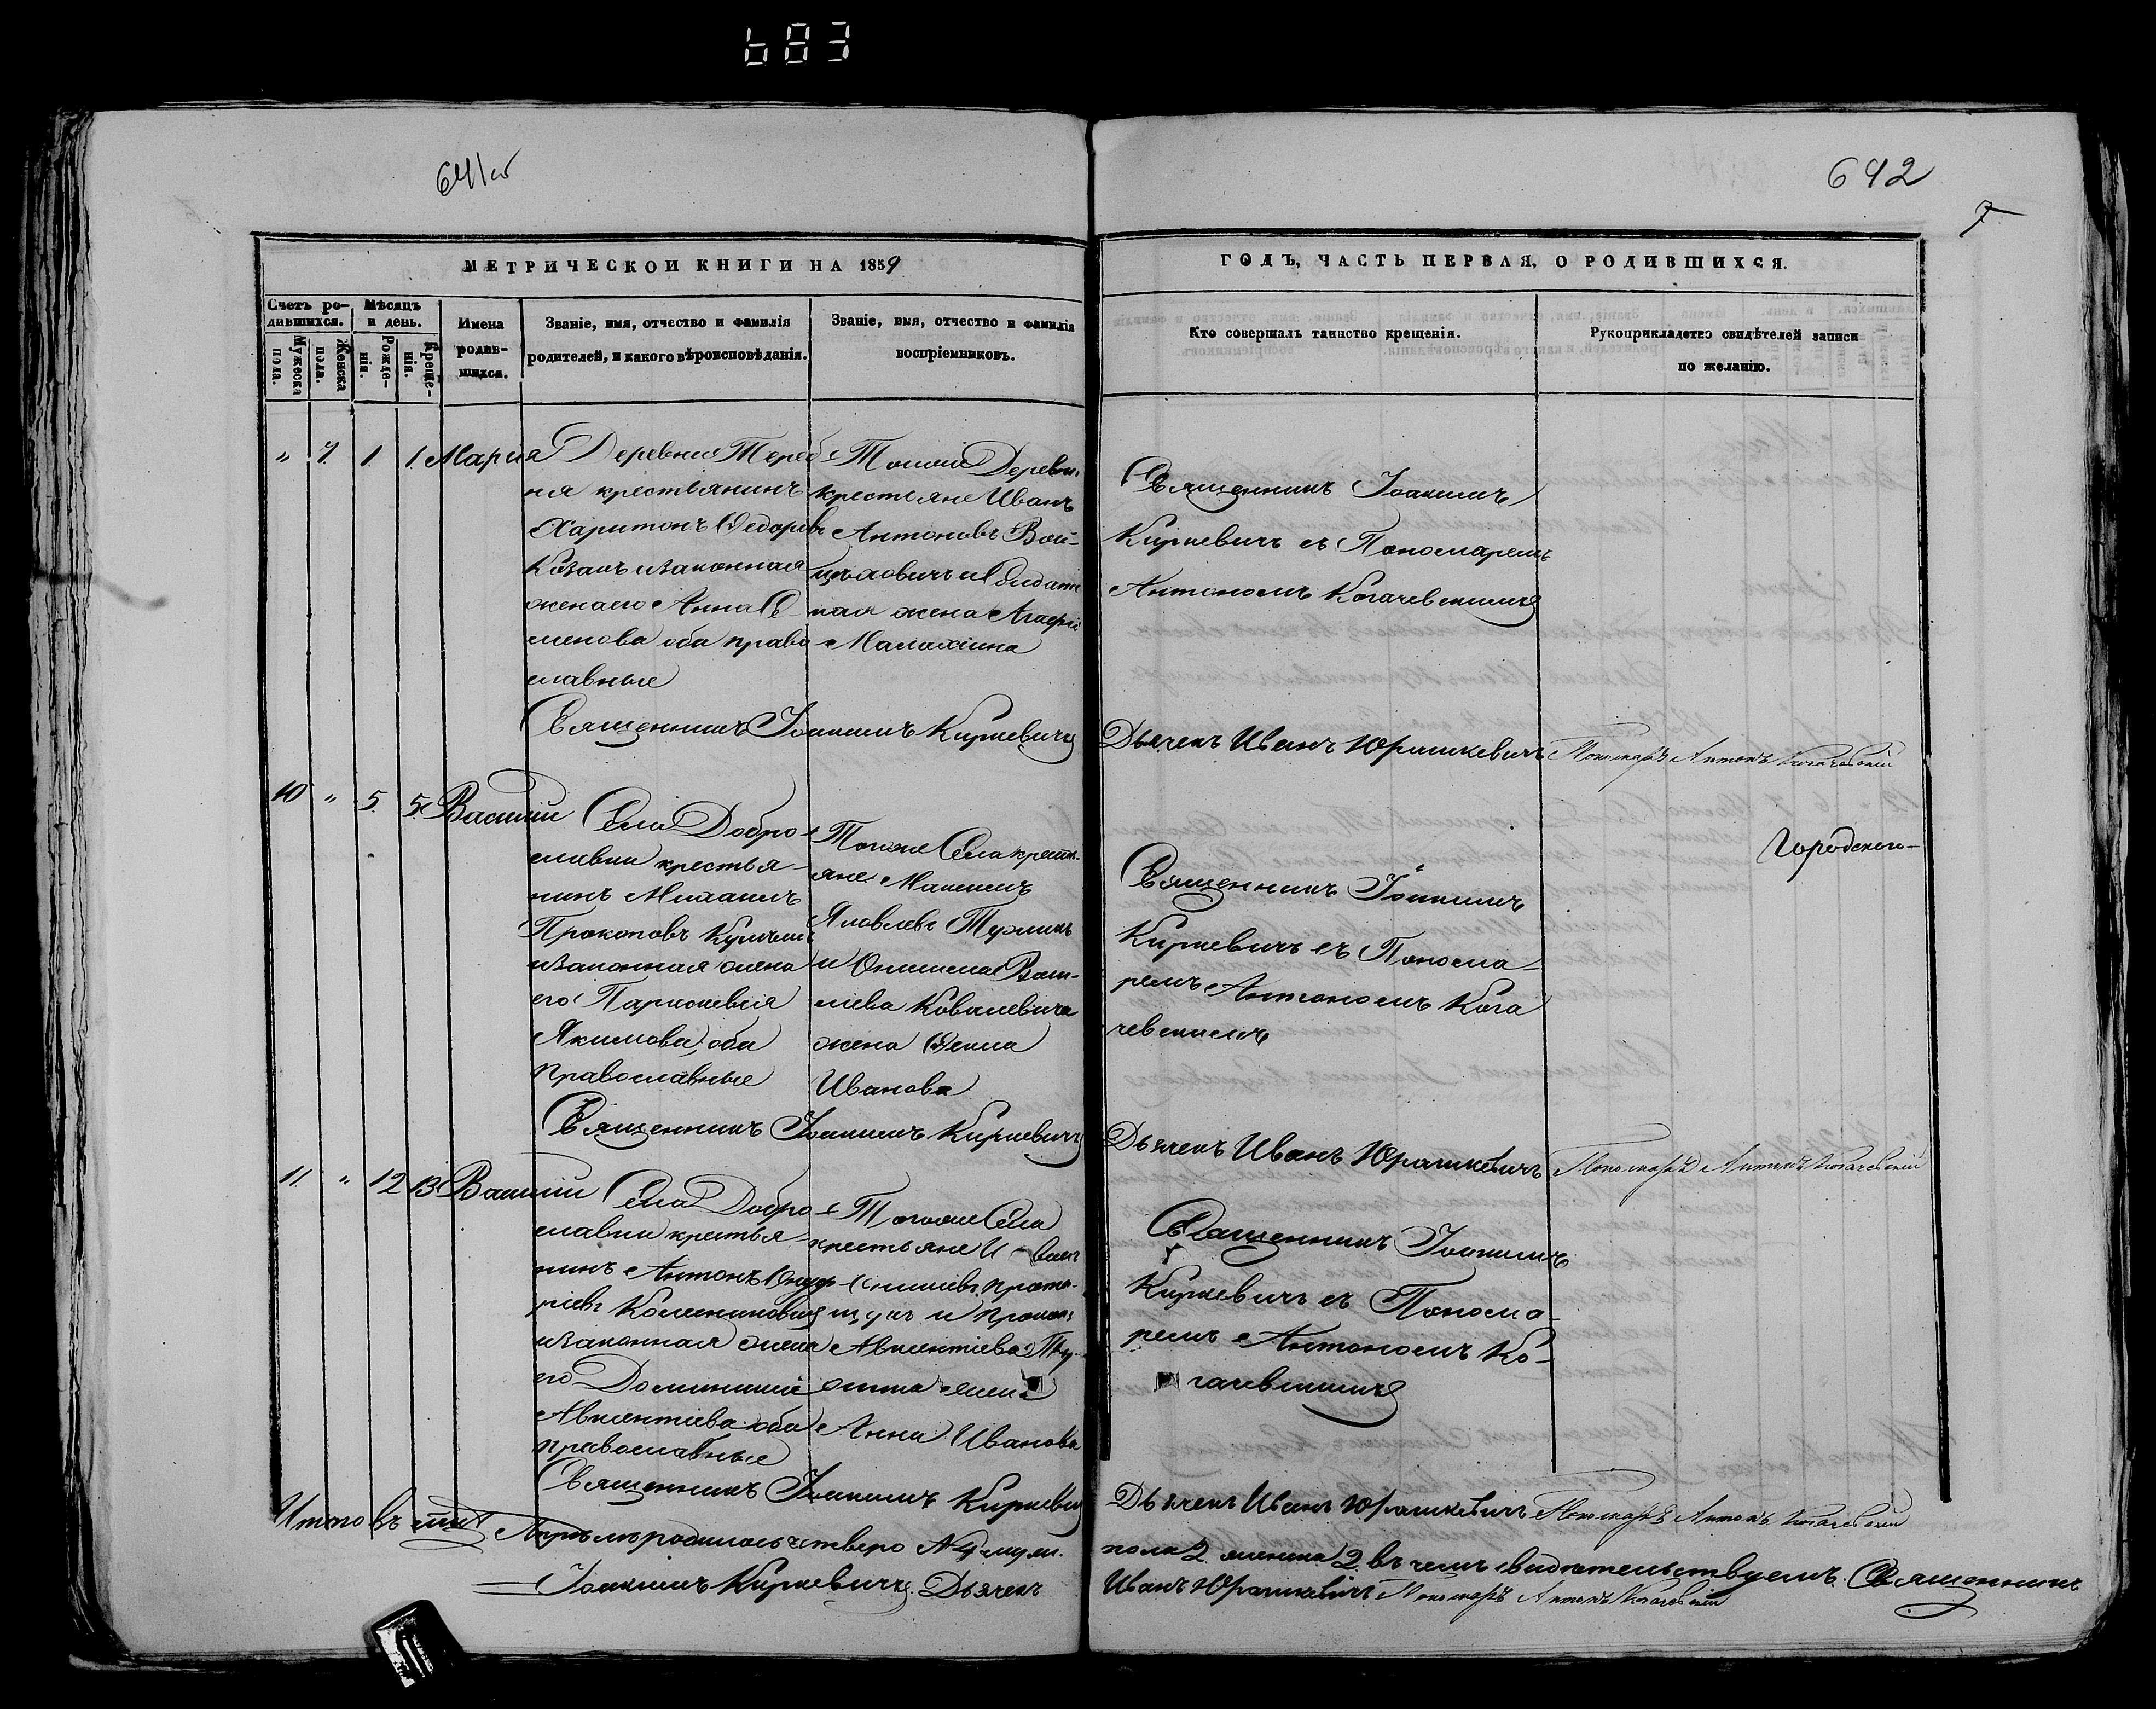 683
641 об
642
7
МЕТРИЧЕСКОЙ КНИГИ НА 1859
ГОДЪ, ЧАСТЬ ПЕРВАЯ, О РОДИВШИХСЯ.
Счетъ ро-
дившихся.
Мужеска
пола.
Женска
пола.
Мѣсяцъ
и день.
Рожде-
нія.
Креще-
нія.
Имена
родив-
шихся.
Званіе, имя, отчество и фамилія
родителей, и какого вѣроисповѣданія.
Званіе, имя, отчество и фамилія
воспріемниковъ.
Кто совершалъ таинство крещенія.
Рукоприкладство свидѣтелей записи
по желанію.
„ 7. 1. 1. Марія
Деревни Тереб
ня крестьянинъ
Харитонъ Ѳедоровъ
Козакъ изаконная
жена его Анна Се
менова оба право
славные
Тойже Деревни
крестьяне Иванъ
Антоновъ Вой-
жена Агафія
Малахіина
Священникъ Іоакимъ
Киркевичъ съ Пономаремъ
Антономъ Когачевскимъ
Священникъ Іоакимъ Киркевичъ
Дьячекъ Иванъ Юрашкевичъ Пономарь Антонъ Когачевскій
10 „ 5. 5. Василій
Села Добро
славки крестья-
нинъ Михаилъ
Прокоповъ
изаконная жена
его Параскевія
Якимова, оба
православные
Тогоже Села крестья-
яне Максимъ
Яковлевъ
Ковалевича
жена Ѳекла
Иванова
Городского-
Священникъ Іоакимъ
Киркевичъ съ Понома-
ремъ Антономъ Кога
чевскимъ
Священникъ Іоакимъ Киркевичъ
Дьячекъ Иванъ Юрашкевичъ Пономарь Антонъ Когачевскій
11. „ 12 13 Василій
Села Добро
славки крестья-
нинъ Антонъ Онуф
ріевъ
изаконная жена
его Доминикія
Авксентіева оба
православные
Тогоже Села
крестьяне
Авксентіева
Анна Иванова
Священникъ Іоакимъ
Киркевичъ съ Понома-
ремъ Антономъ Ко-
гачевскимъ
Священникъ Іоакимъ Киркевичъ
Дьячекъ Иванъ Юрашкевичъ Пономарь Антонъ Когачевскій
Итого въ
Апрѣлѣ родилось четверо № 4 муж.
пола 2. женска 2. въ чемъ свидѣтельствуемъ. Священникъ
Іоакимъ Киркевичъ. Дьячекъ
Иванъ Юрашкевичъ Пономарь Антонъ Когачевскій